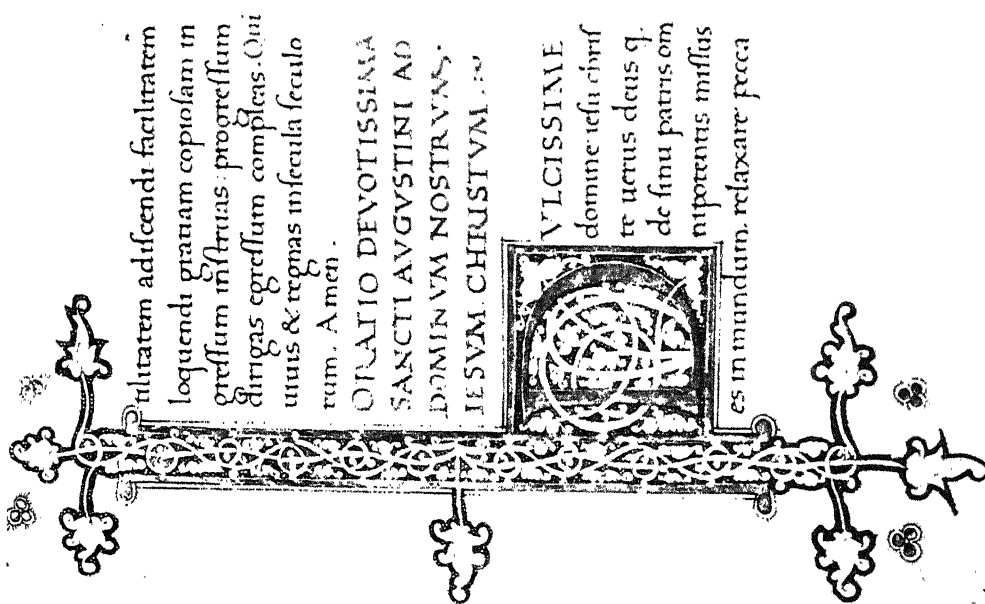 tilitatem adiscendi facilitatem
loquendi gratiam copiosam in
gressum instruas: progressum
dirigas egressum compleas. Qui
uiuis & regnas insecula seculo
rum. Amen.
ORATIO DEVOTISSIMA
SANCTI AVGVSTINI AD
DOMINVM NOSTRVM.
IESVM CHRISTVM.
DVLCISSIME
domine iesu chris
te uerus deus q.
de sinu patris om
nipotentis missus
es in mundum. relaxare pecca